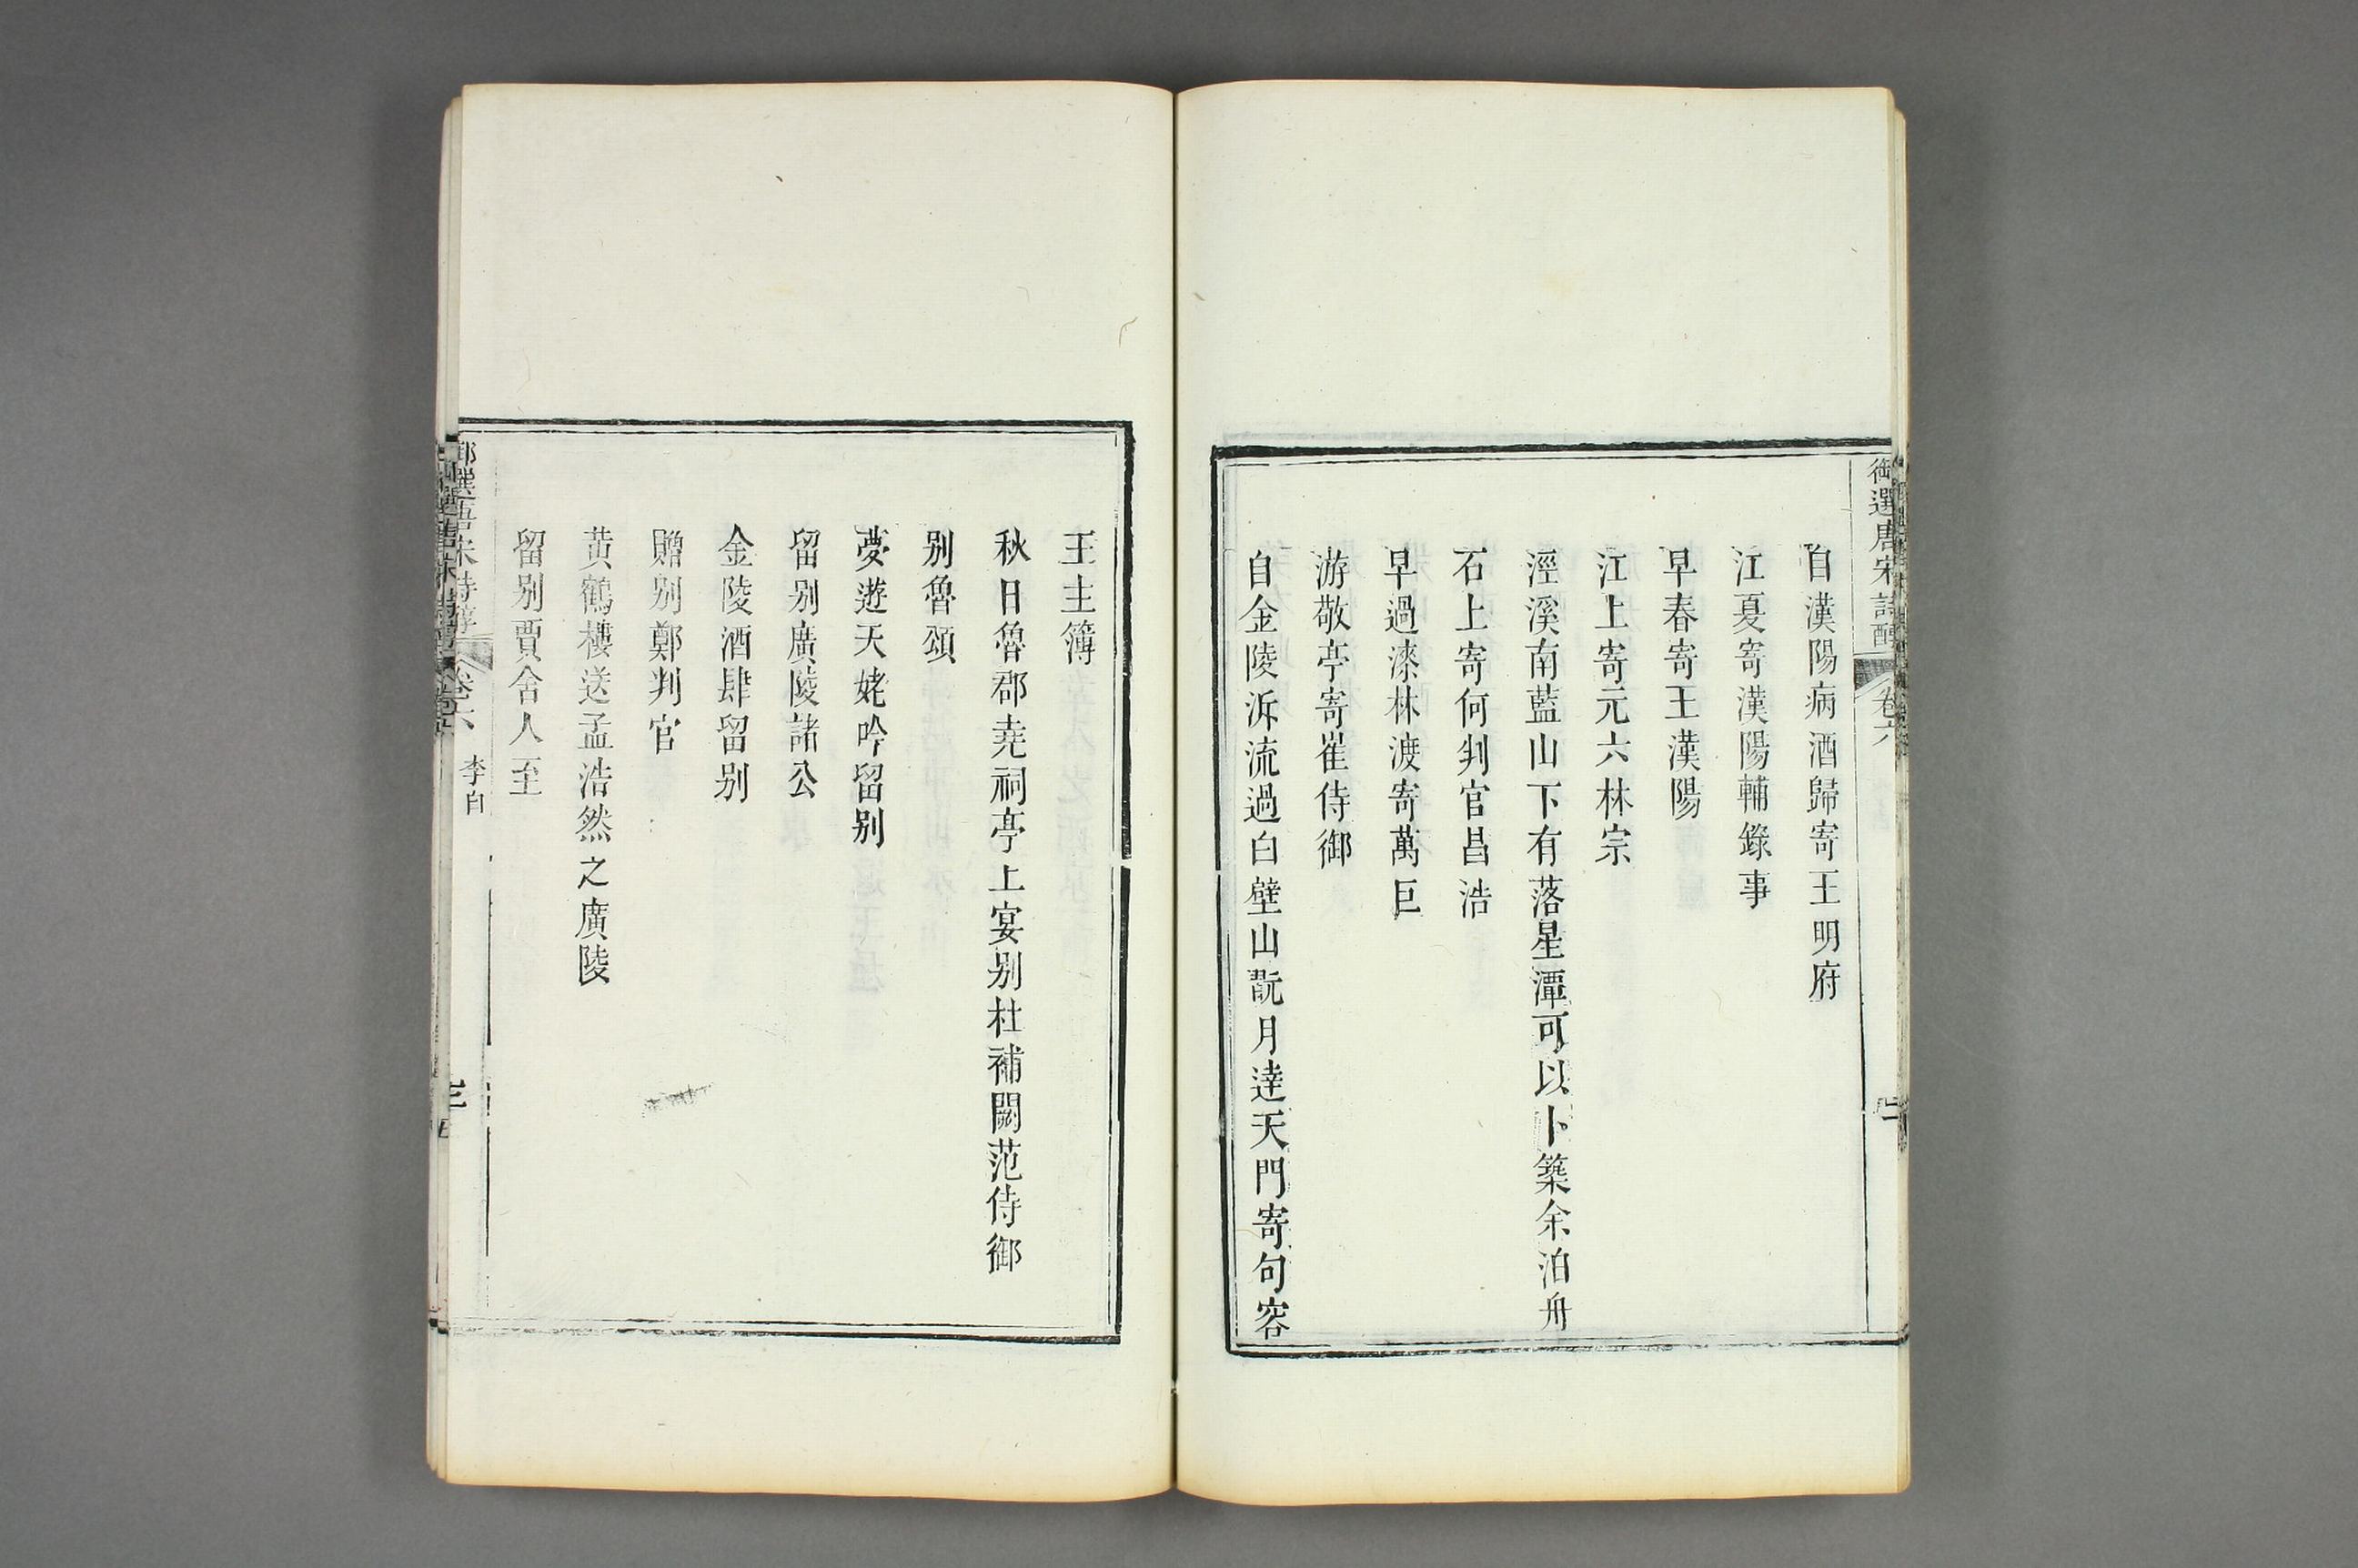 御選唐宋詩醇 卷六 二
自漢陽病酒歸寄王明府
江夏寄漢陽輔錄事
早春寄王漢陽
江上寄元六林宗
涇溪南藍山下有落星潭可以卜築余泊舟
石上寄何判官昌浩
早過漆林渡寄萬巨
游敬亭寄崔侍御
自金陵泝流過白壁山翫月達天門寄句容
王主簿
秋日魯郡堯祠亭上宴别杜補闕范侍御
别魯頌
夢遊天姥吟留别
留别廣陵諸公
金陵酒肆留别
贈别鄭判官
黄鶴樓送孟浩然之廣陵
留别賈舍人至
御選唐宋詩醇 卷六 李白 三